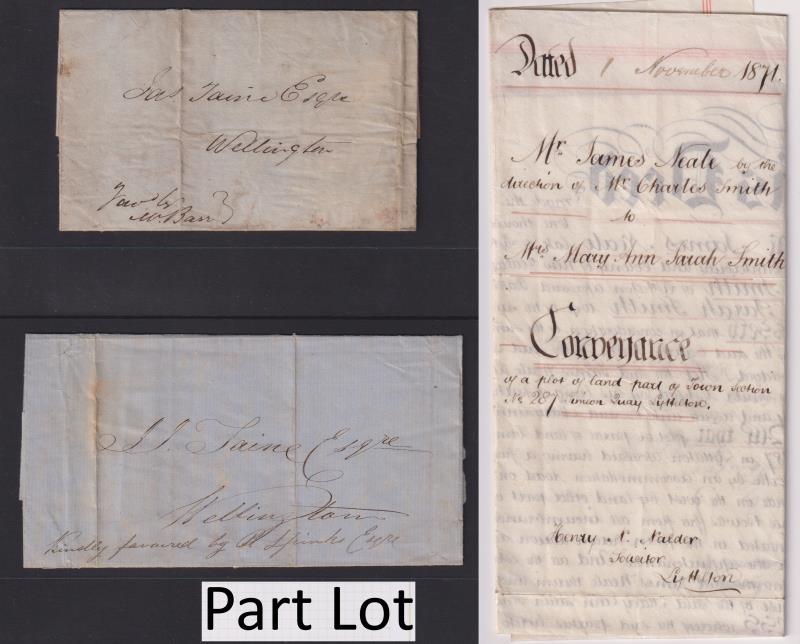 Jas Taine Esqre
Wellington
Favd by
Mr Barr
J. J. Taine Esqre
Wellington
Kindly favoured by Spinks Esqre
Part Lot
Dated 1 November 1871.
Mr James Neale by the
direction of Mr Charles Smith
to
Mrs Mary Ann Sarah Smith
Conveyance
of a plot of land part of Town Section
No 287 Union Quay Lyttelton.
Henry N. Nalder
Solicitor
Lyttelton